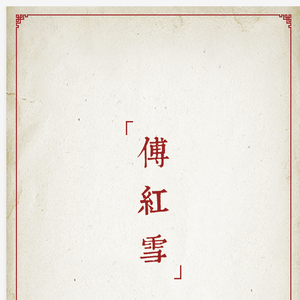 「傅紅雪」